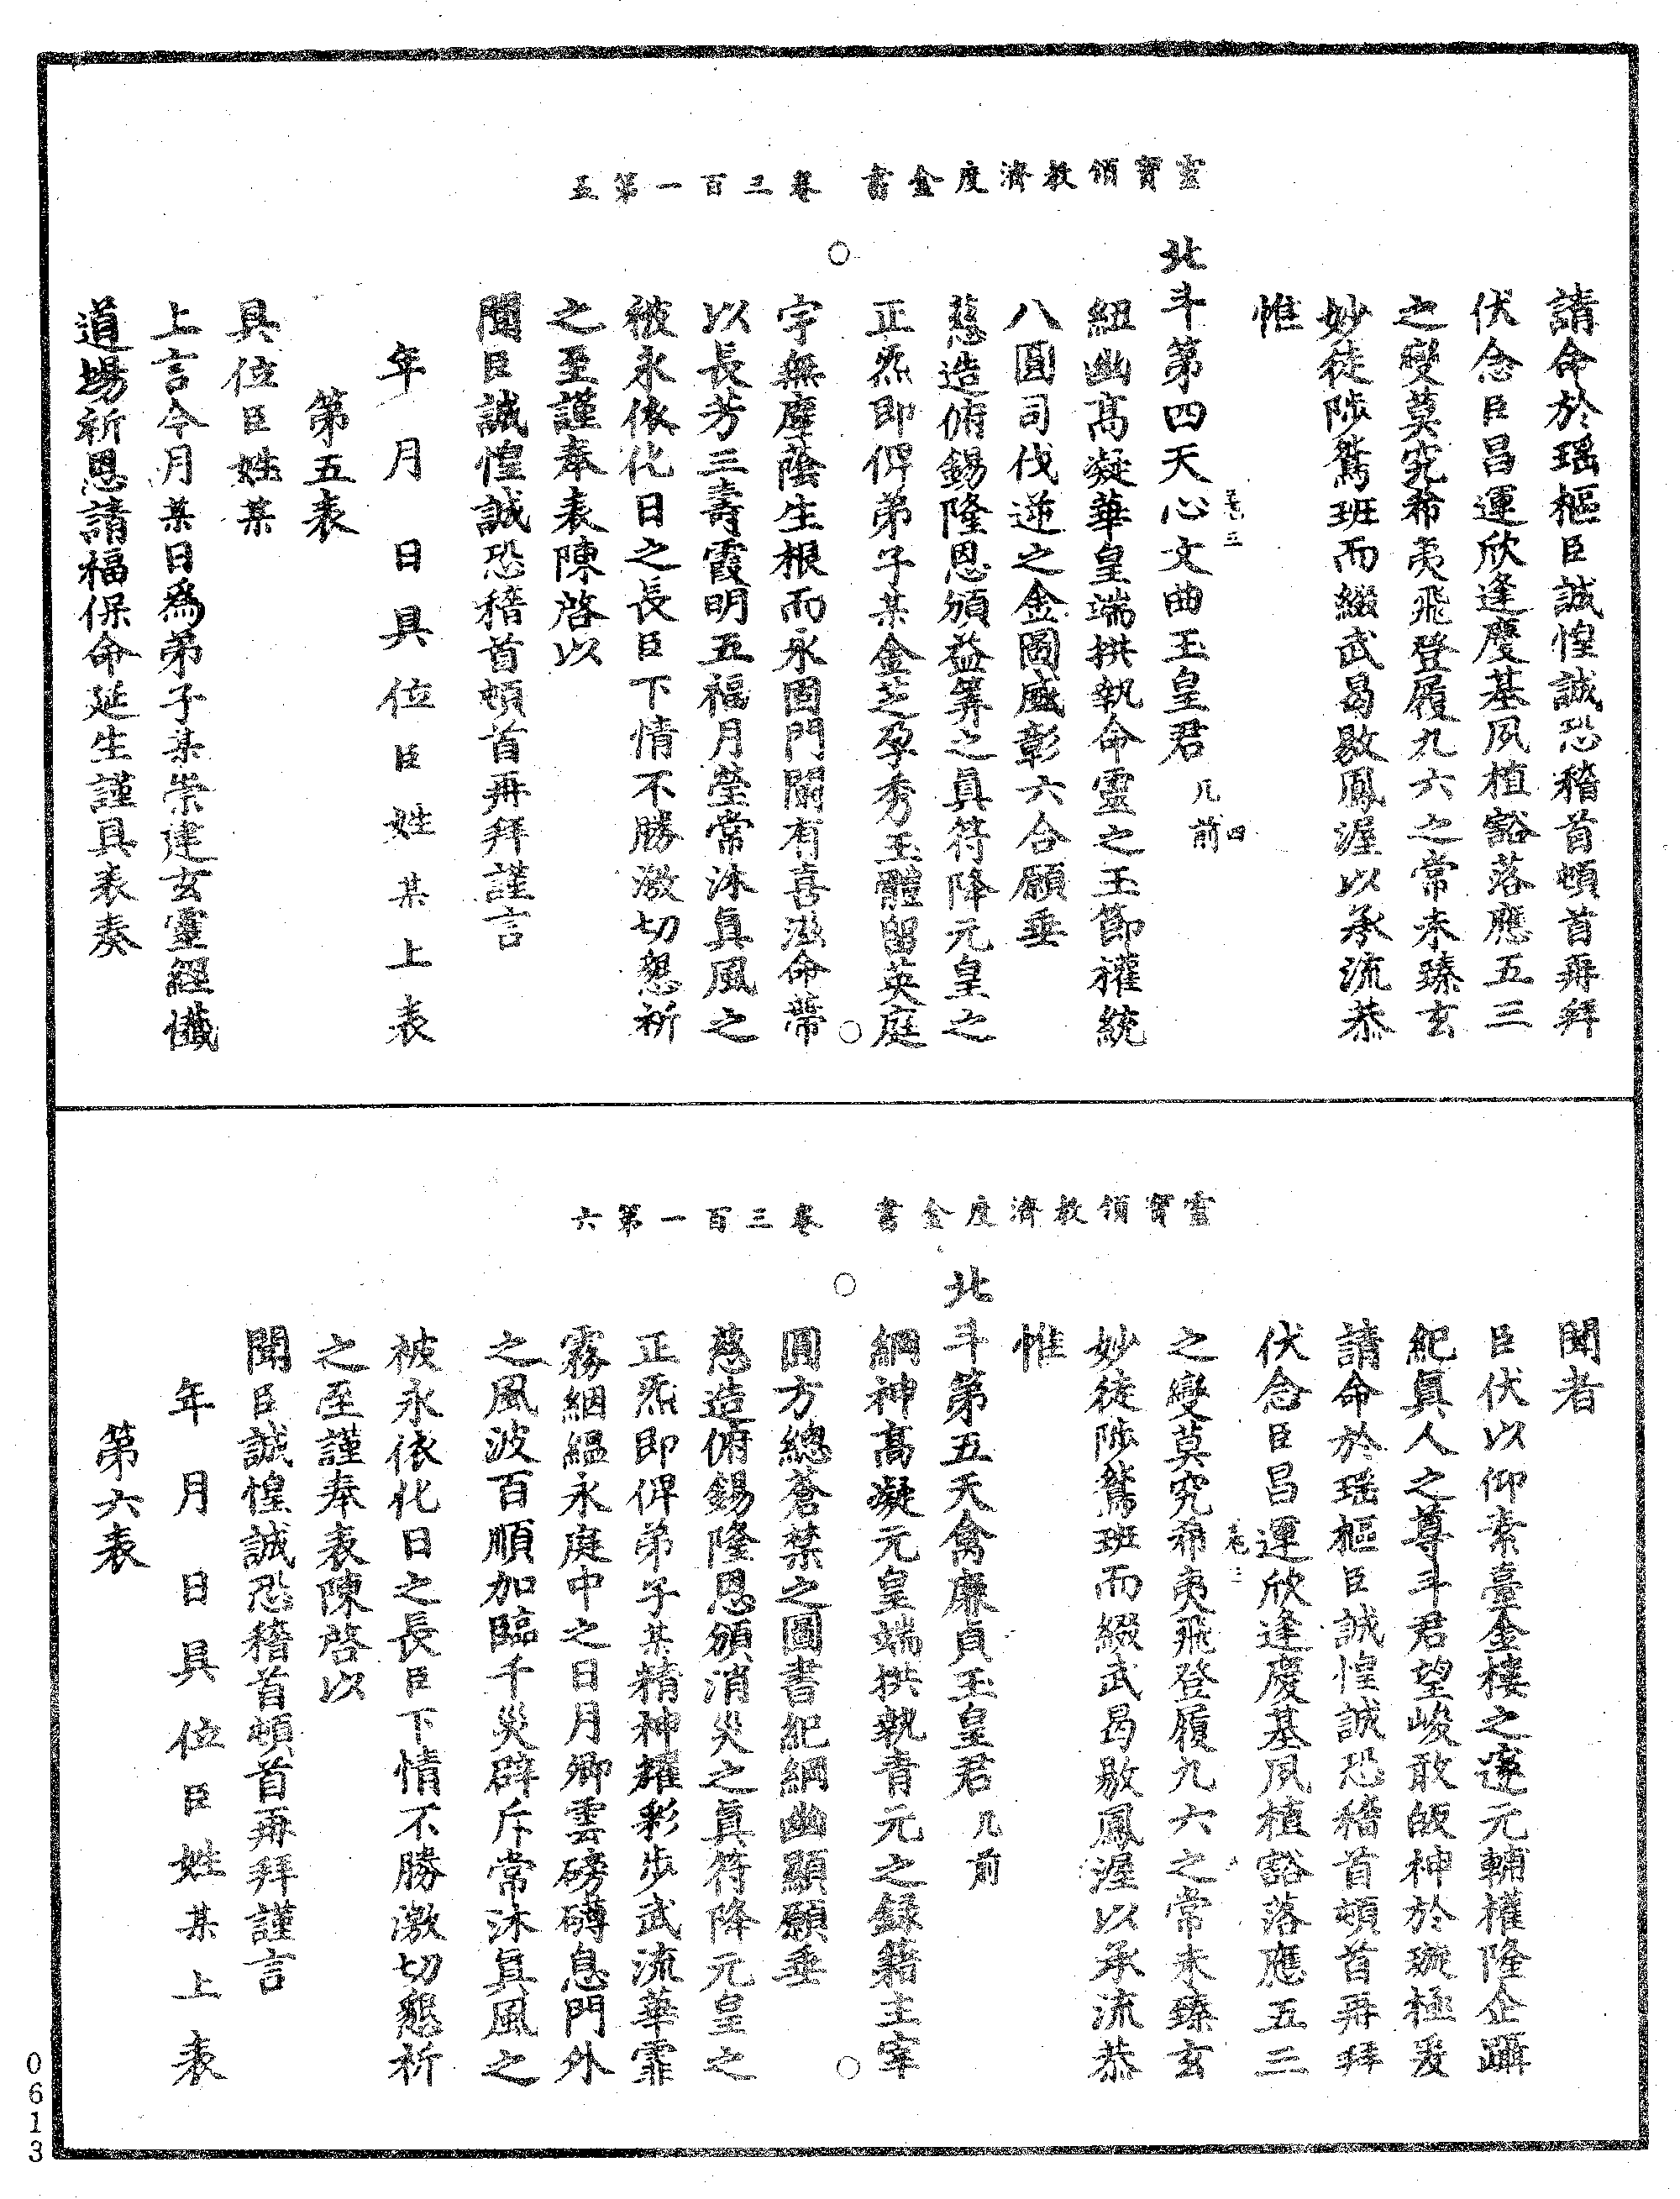 靈寶領教濟度金書　卷三百一第五
請命於瑶樞臣誠惶誠恐稽首頓首再拜
伏念臣昌運欣逢慶基夙植豁落應五三
之變莫究希夷飛登履九六之常未臻玄
妙徒陟鵷班而綴武曷敭鳳渥以承流恭
惟
北斗第四天心文曲玉皇君几前
卷三　四
紐幽高凝華皇端拱執命靈之王節權統
八圓司伐逆之金圖威彰六合願垂
慈造俯錫隆恩頒益筭之真符降元皇之
正炁即俾弟子某金芝孕秀玉體留英庭
宇無塵蔭生根而永固門闌有喜滋命蒂
以長芳三壽霞明五福月瑩常沐真風之
被永依化日之長臣下情不勝激切懇祈
之至謹奉表陳啓以
聞臣誠惶誠恐稽首頓首再拜謹言
年月日具位臣姓某上表
第五表
具位臣姓某
上言今月某日為弟子某崇建玄靈經懺
道場祈恩請福保命延生謹具表奏
靈寶領教濟度金書　卷三百一第六
聞者
臣伏以仰素臺金樓之邃元輔權隆企躡
紀真人之尊斗君望峻敢皈神於璇極爰
請命於瑶樞臣誠惶誠恐稽首頓首再拜
伏念臣昌運欣逢慶基夙植豁落應五三
卷三
之變莫究希夷飛登履九六之常未臻玄
妙徒陟鵷班而綴武曷敭鳳渥以承流恭
惟
北斗第五天禽廉貞玉皇君几前
綱神高凝元皇端拱執青元之録籍主宰
圓方總蒼禁之圖書紀綱幽顯願垂
慈造俯錫隆恩頒消災之真符降元皇之
正炁即俾弟子某精神耀彩步武流華霏
霧絪緼永庭中之日月卿雲磅礡息門外
之風波百順加臨千災辟斥常沐真風之
被永依化日之長臣下情不勝激切懇祈
之至謹奉表陳啓以
聞臣誠惶誠恐稽首頓首再拜謹言
年月日具位臣姓某上表
第六表
0613